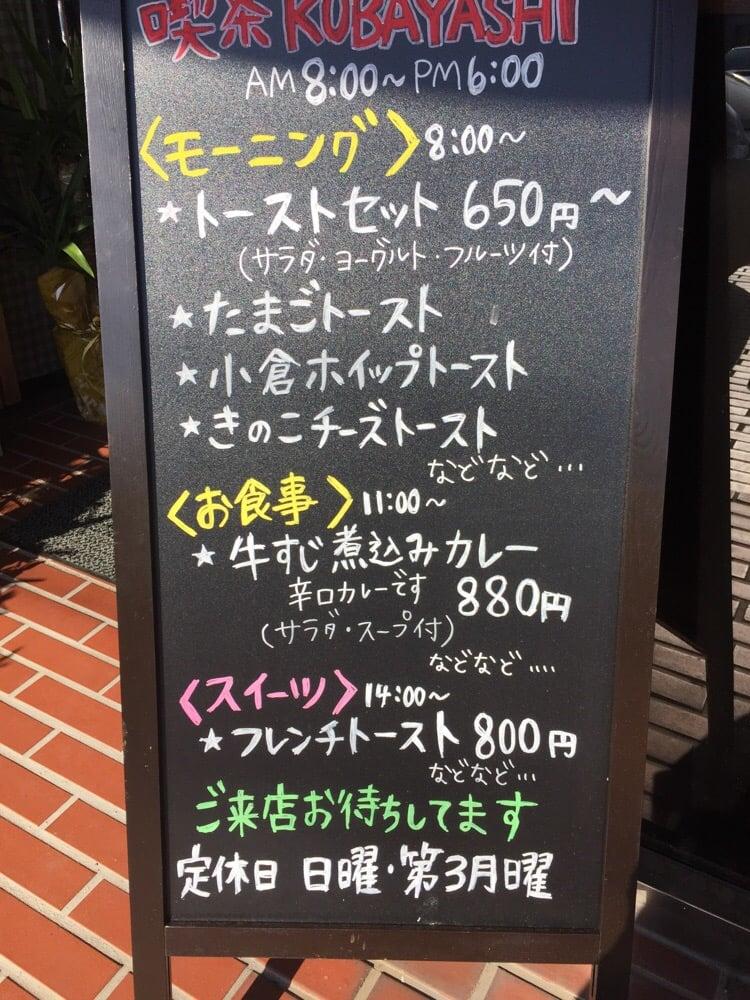 喫茶 KOBAYASHI
AM 8:00~PM 6:00
〈モーニング〉8:00~
★トーストセット 650円~
(サラダ・ヨーグルト・フルーツ付)
★たまごトースト
★小倉ホイップトースト
★きのこチーズトースト
などなど…
〈お食事〉11:00~
★牛すじ煮込みカレー
辛口カレーです 880円
(サラダ・スープ付)
などなど....
〈スイーツ〉14:00~
★フレンチトースト 800円
などなど...
ご来店お待ちしてます
定休日 日曜・第3月曜